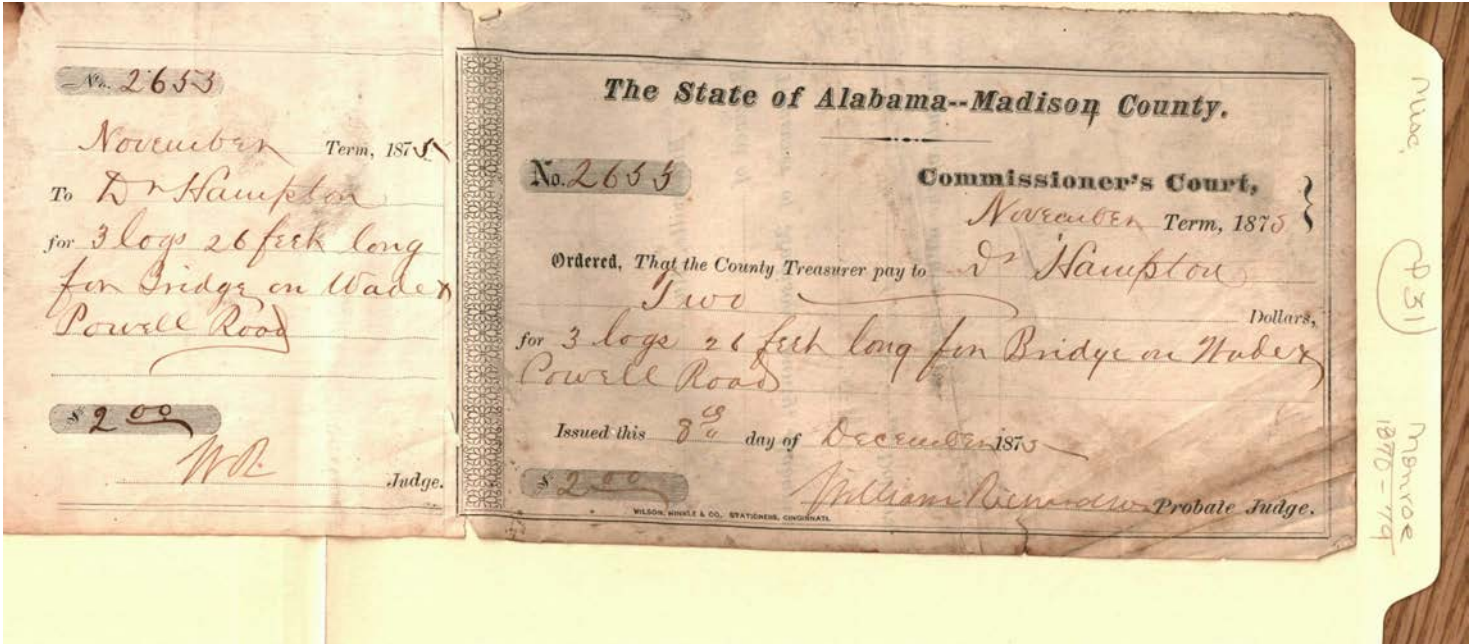 No. 2653
November Term, 1875
To Dr Hampton
for 3 logs 26 feet long
for Bridge on Wade x
Powell Road
$ 2 00
W R. Judge.
The State of Alabama--Madison County.
No. 2653
Commissioner's Court,
November Term, 1875
Ordered, That the County Treasurer pay to Dr Hampton
Two Dollars,
for 3 logs 26 feet long for Bridge on Wade x
Powell Road
Issued this 8th day of December 1875
$ 2 00
William Richardson Probate Judge.
WILSON, HINKLE & CO. STATIONERS, CINCINNATI.
Misc.
P31
Monroe
1870-79